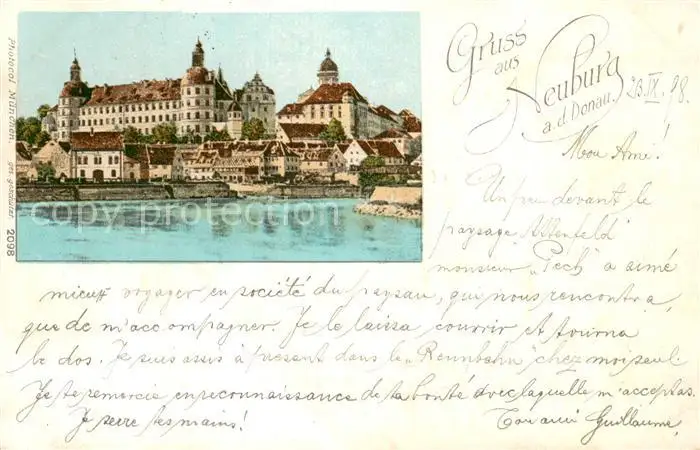 Photocol München
ges. geschützt
2098
Gruss
aus
Neuburg
a. d. Donau.
23.IX.98.
Mon Ami!
Un peu devant le
paysage "Attenfeld"
monsieur "Pech" a aimé
mieux voyager en société du paysan, qui nous rencontra,
que de m'accompagner. Je le laissa courrir et tourna
le dos. Je suis assis à présent dans le "Rennbahn" chez moi seul.
Je te remercie en reconnaissance de ta bonté avec laquelle m'acceptas.
Je serre tes mains!
Ton ami Guillaume.
copyright